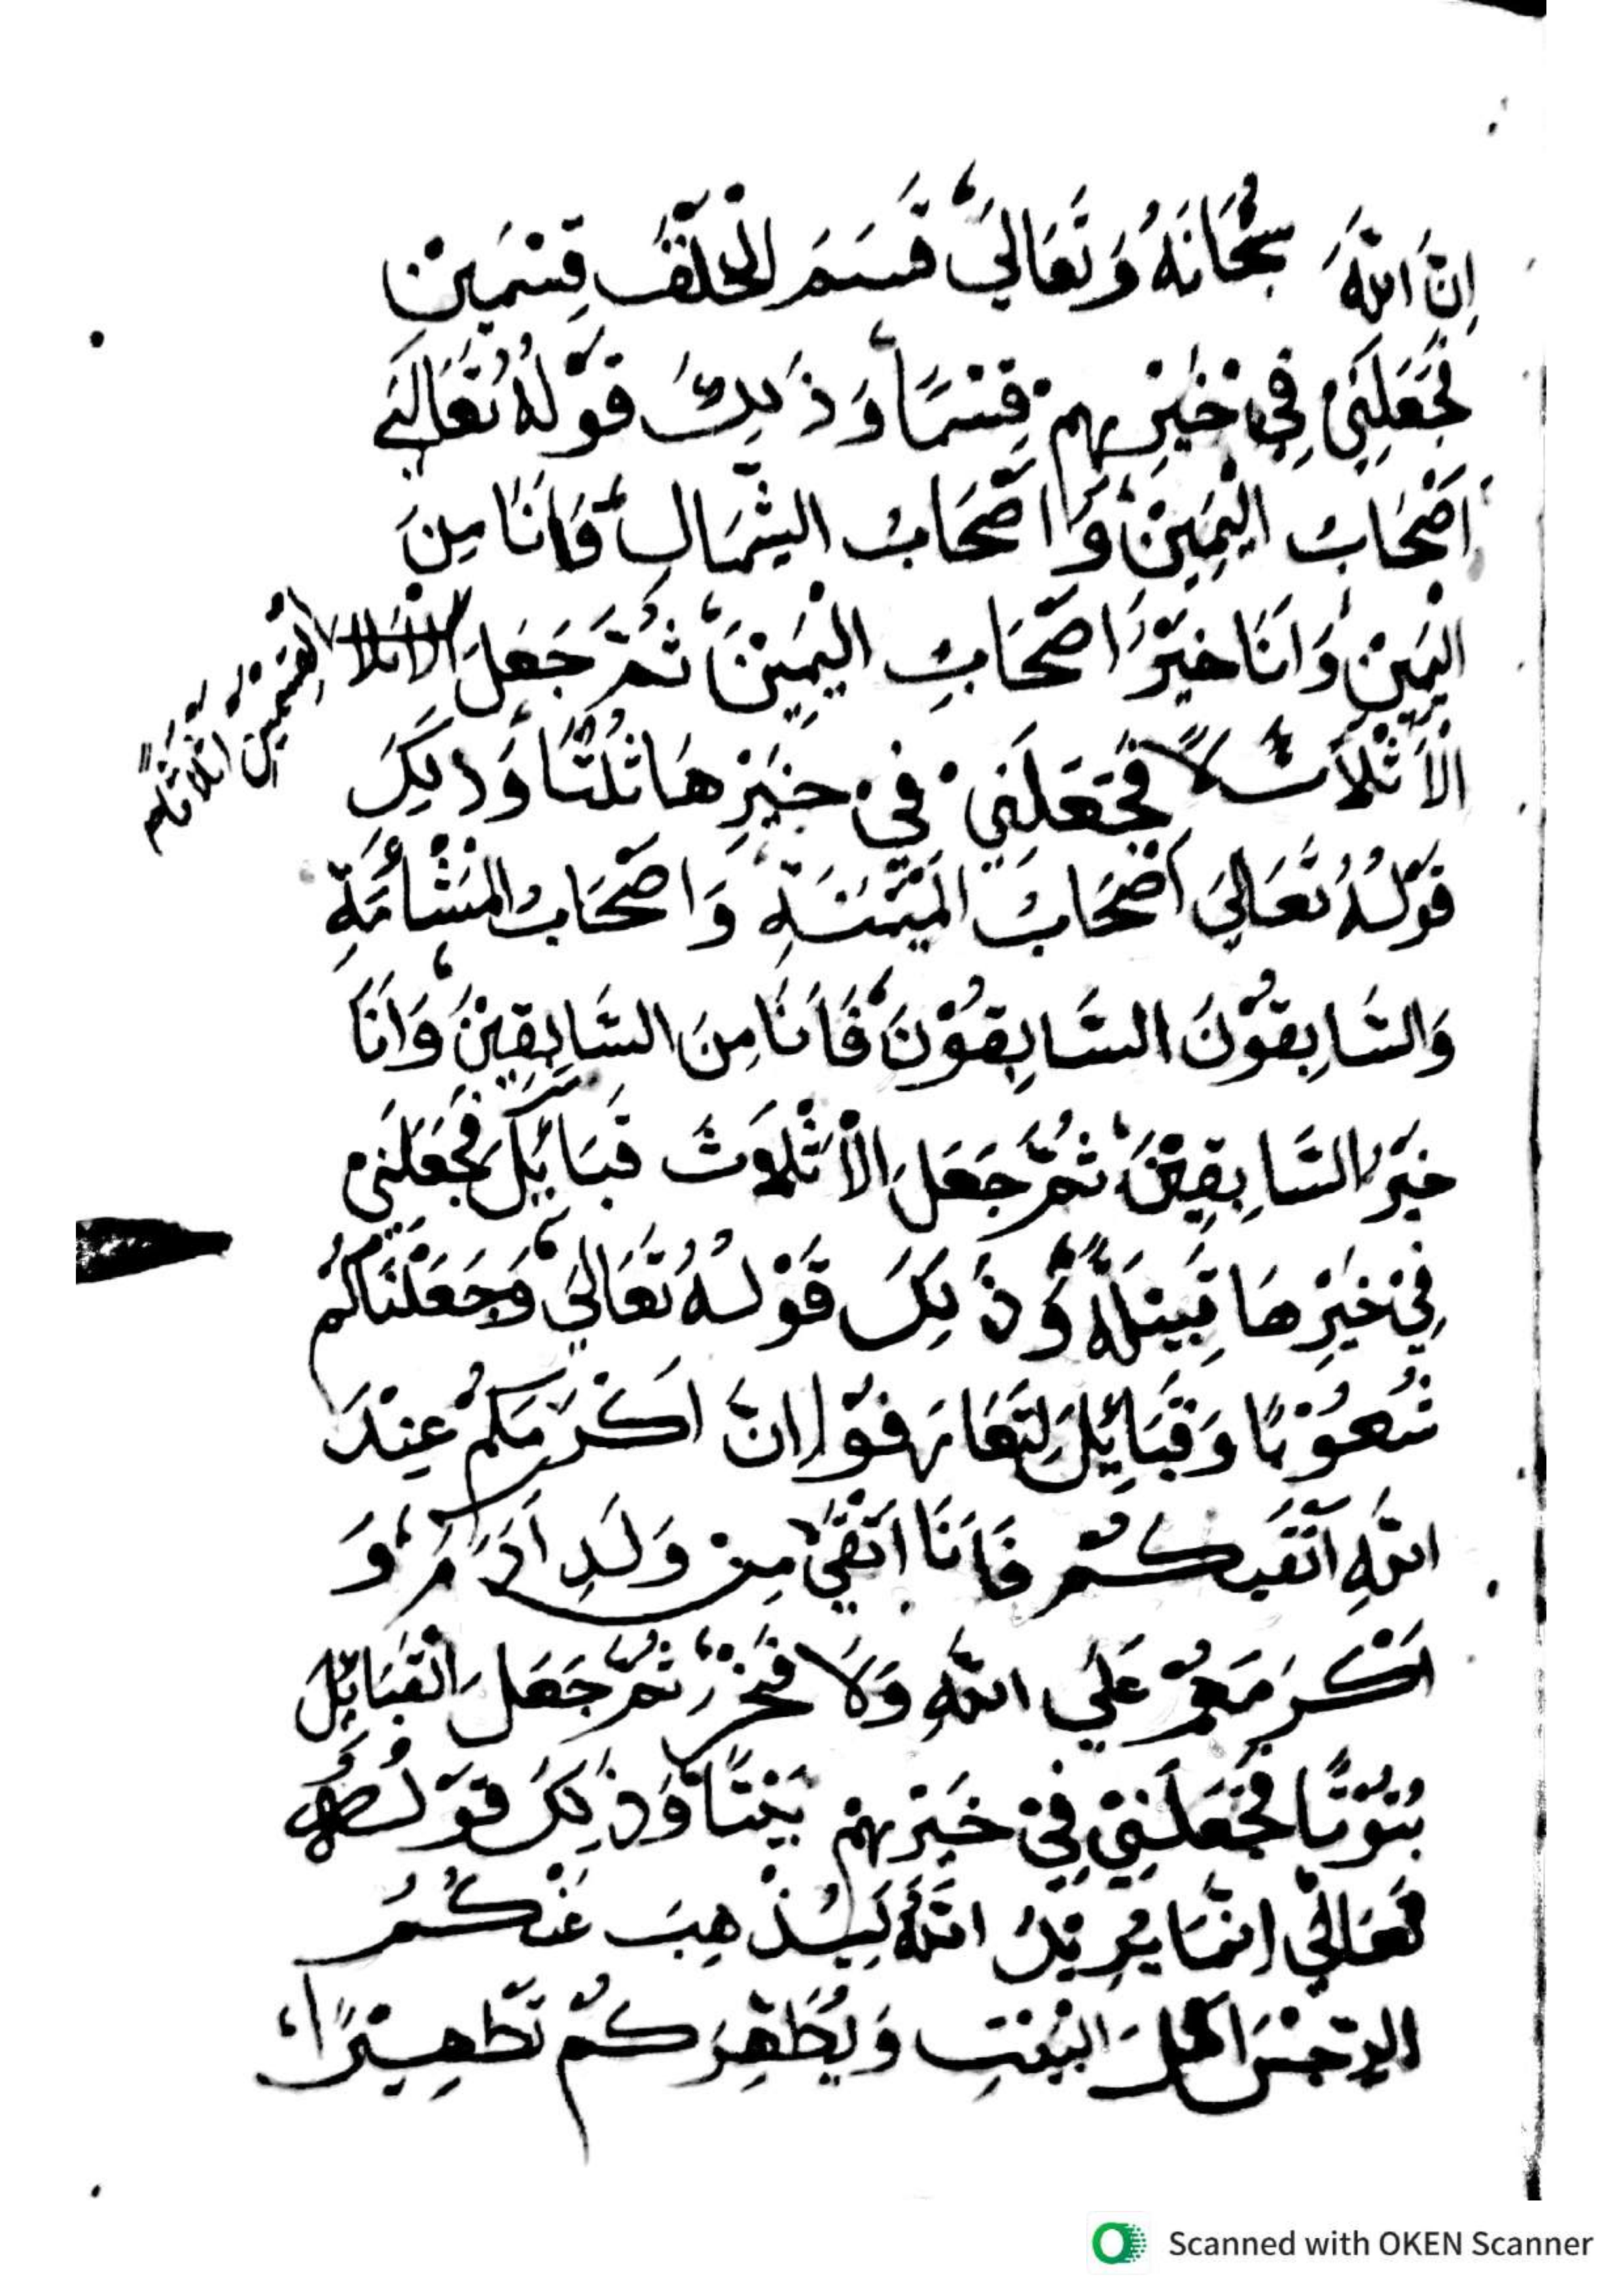 اِنَّ اللّٰهَ سُبْحَانَهُ وَتَعَالَي قَسَمَ الْخَلْقَ قِسْمَيْنِ
فَجَعَلَنِيْ فِيْ خَيْرِهِمْ قِسْمًا وَذٰلِكَ قَوْلُهُ تَعَالَي
اَصْحَابُ الْيَمِيْنِ وَاَصْحَابُ الشِّمَالِ فَاَنَا مِنَ
الْيَمِيْنِ وَاَنَا خَيْرُ اَصْحَابِ الْيَمِيْنَ ثُمَّ جَعَلَ
الْقِسْمَيْنِ اَثْلَاثًا
الْاَثْلَاثَ فَجَعَلَنِيْ فِيْ خَيْرِهَا ثُلُثًا وَذٰلِكَ
قَوْلُهُ تَعَالَي اَصْحَابُ الْمَيْمَنَةِ وَاَصْحَابُ الْمَشْأَمَةِ
وَالسَّابِقُوْنَ السَّابِقُوْنَ فَاَنَا مِنَ السَّابِقِيْنَ وَاَنَا
خَيْرُ السَّابِقِيْنَ ثُمَّ جَعَلَ الْاَثْلَاثَ قَبَائِلَ فَجَعَلَنِيْ
فِيْ خَيْرِهَا قَبِيْلَةً وَذٰلِكَ قَوْلُهُ تَعَالَي وَجَعَلْنَاكُمْ
شُعُوْبًا وَقَبَائِلَ لِتَعَارَفُوْا اِنَّ اَكْرَمَكُمْ عِنْدَ
اللّٰهِ اَتْقَيكُمْ فَاَنَا اَتْقَي مِنْ وَلَدِ اٰدَمَ وَ
اَكْرَمَهُمْ عَلَي اللّٰهِ وَلَا فَخْرَ ثُمَّ جَعَلَ الْقَبَائِلَ
بُيُوْتًا فَجَعَلَنِيْ فِيْ خَيْرِهِمْ بَيْتًا وَذٰلِكَ قَوْلُهُ
تَعَالَي اِنَّمَا يُرِيْدُ اللّٰهُ لِيُذْهِبَ عَنْكُمُ
الرِّجْسَ اَهْلَ الْبَيْتِ وَيُطَهِّرَكُمْ تَطْهِيْرًا
Scanned with OKEN Scanner